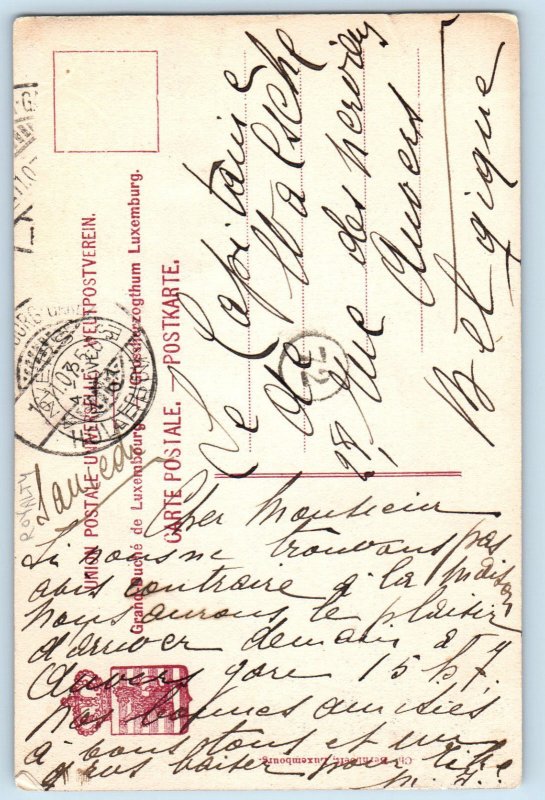 UNION POSTALE UNIVERSELLE. WELTPOSTVEREIN.
Grand-Duché de Luxembourg. Grossherzogthum Luxemburg.
CARTE POSTALE. — POSTKARTE.
Le Capitaine
de Walsche
28, Rue des
Anvers
Belgique
12
ROYALTY
Samedi
Cher Monsieur
Si nous ne trouvons pas
avis contraire à la maison
nous aurons le plaisir
d'arriver demain à
Anvers gare 15 h 7,
nos bonnes amitiés
à vous tous et un
gros baiser pour
Luxembourg.